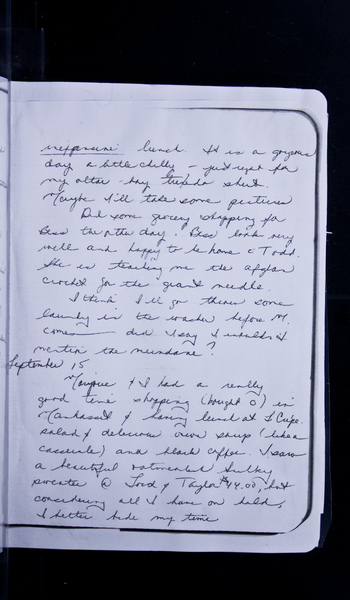 inexpensive lunch. It is a gorgeous
day a little chilly – just right for
my after - day tuxedo shirt.
Maybe I'll take some pictures
Did some grocery shopping for
Bess the other day. Bess look very
well and happy to be home c Todd.
She is teaching me the afghan
crochet for the giant needle.
I think I'll go throw some
laundry in the washer before M.
comes did I say I wouldn't
mention the mundane?
September 15
Margie & I had a really
good time shopping (bought 0) in
Manhasset & having lunch at La Crepe.
salad & delicious onion soup (like a
casserole) and black coffee. I saw
a beautiful oatmeal bulky
sweater @ Lord & Taylor $44.00, but
considering all I have on hold,
I better bide my time